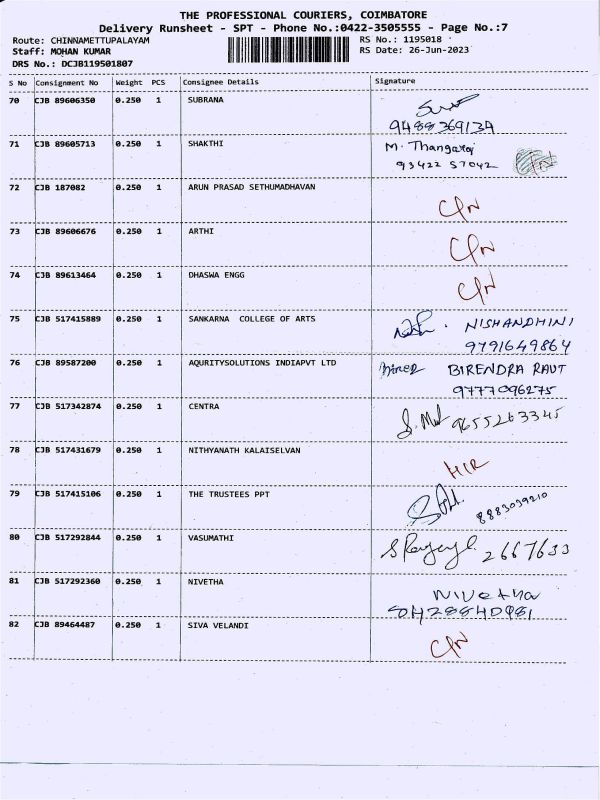 THE PROFESSIONAL COURIERS, COIMBATORE
Delivery Runsheet - SPT - Phone No.:0422-3505555 - Page No.:7
Route: CHINNAMETTUPALAYAM RS No.: 1195018
Staff: MOHAN KUMAR RS Date: 26-Jun-2023
DRS No.: DCJB119501807
S No Consignment No Weight PCS Consignee Details Signature
70 CJB 89606350 0.250 1 SUBRANA
9488369139
71 CJB 89605713 0.250 1 SHAKTHI M. Thangaraj
93422 57042
72 CJB 187082 0.250 1 ARUN PRASAD SETHUMADHAVAN
C/N
73 CJB 89606676 0.250 1 ARTHI
C/N
74 CJB 89613464 0.250 1 DHASWA ENGG
C/N
75 CJB 517415889 0.250 1 SANKARNA COLLEGE OF ARTS NISHANDHINI
9791649864
76 CJB 89587200 0.250 1 AQURITYSOLUTIONS INDIAPVT LTD BIRENDRA RAUT
9777096275
77 CJB 517342874 0.250 1 CENTRA
9655263345
78 CJB 517431679 0.250 1 NITHYANATH KALAISELVAN
79 CJB 517415106 0.250 1 THE TRUSTEES PPT
8883039210
80 CJB 517292844 0.250 1 VASUMATHI
2667633
81 CJB 517292360 0.250 1 NIVETHA
Nivetha
82 CJB 89464487 0.250 1 SIVA VELANDI
C/N